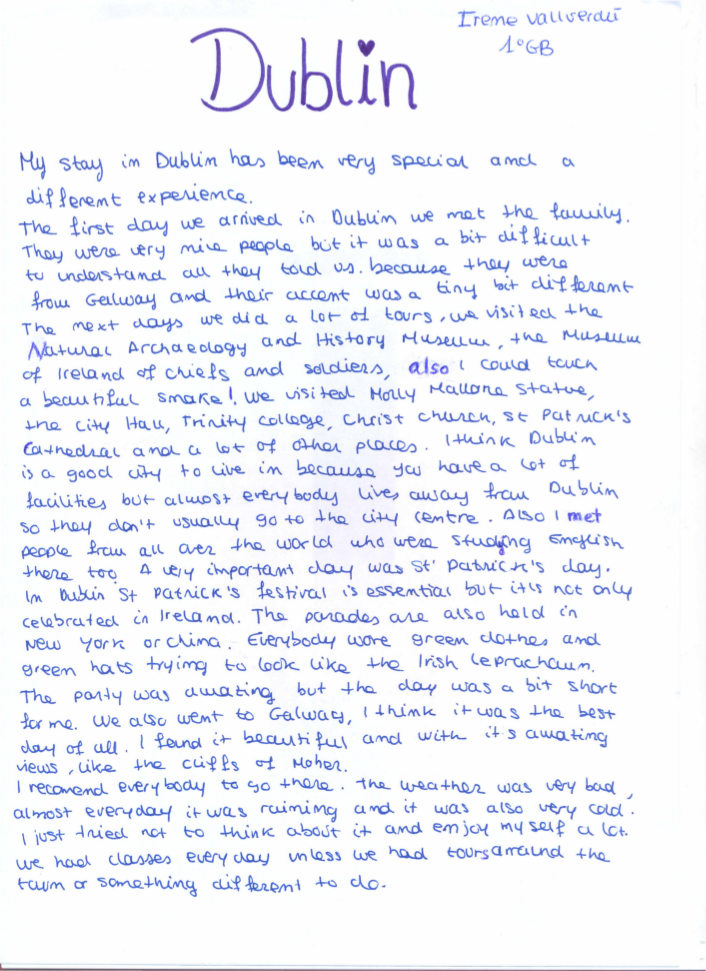 Irene Vallverdú
1º GB
Dublin
My stay in Dublin has been very special and a
different experience.
The first day we arrived in Dublin we met the family.
They were very nice people but it was a bit difficult
to understand all they told us. because they were
from Galway and their accent was a tiny bit different
The next days we did a lot of tours, we visited the
Natural Archaedogy and History Museum, the Museum
of Ireland of chiefs and soldiers, also I could touch
a beautiful snake! We visited Molly Mallone Statue,
the City Hall, Trinity College, Christ Church, St Patrick's
Cathedral and a lot of other places. I think Dublin
is a good city to live in because you have a lot of
facilities but almost everybody lives away from Dublin
so they don't usually go to the city centre. Also I met
people from all over the world who were studying English
there too. A very important day was St' Patrick's day.
In Dublin St Patrick's festival is essential but it's not only
celebrated in Ireland. The parades are also held in
New York or China. Everybody wore green clothes and
green hats trying to look like the Irish Leprachaun.
The party was amazing but the day was a bit short
for me. We also went to Galway, I think it was the best
day of all. I found it beautiful and with it's amazing
views, like the cliffs of Moher.
I recomend everybody to go there. The weather was very bad,
almost everyday it was raining and it was also very cold.
I just tried not to think about it and enjoy my self a lot.
We had classes every day unless we had tours arraund the
town or something different to do.